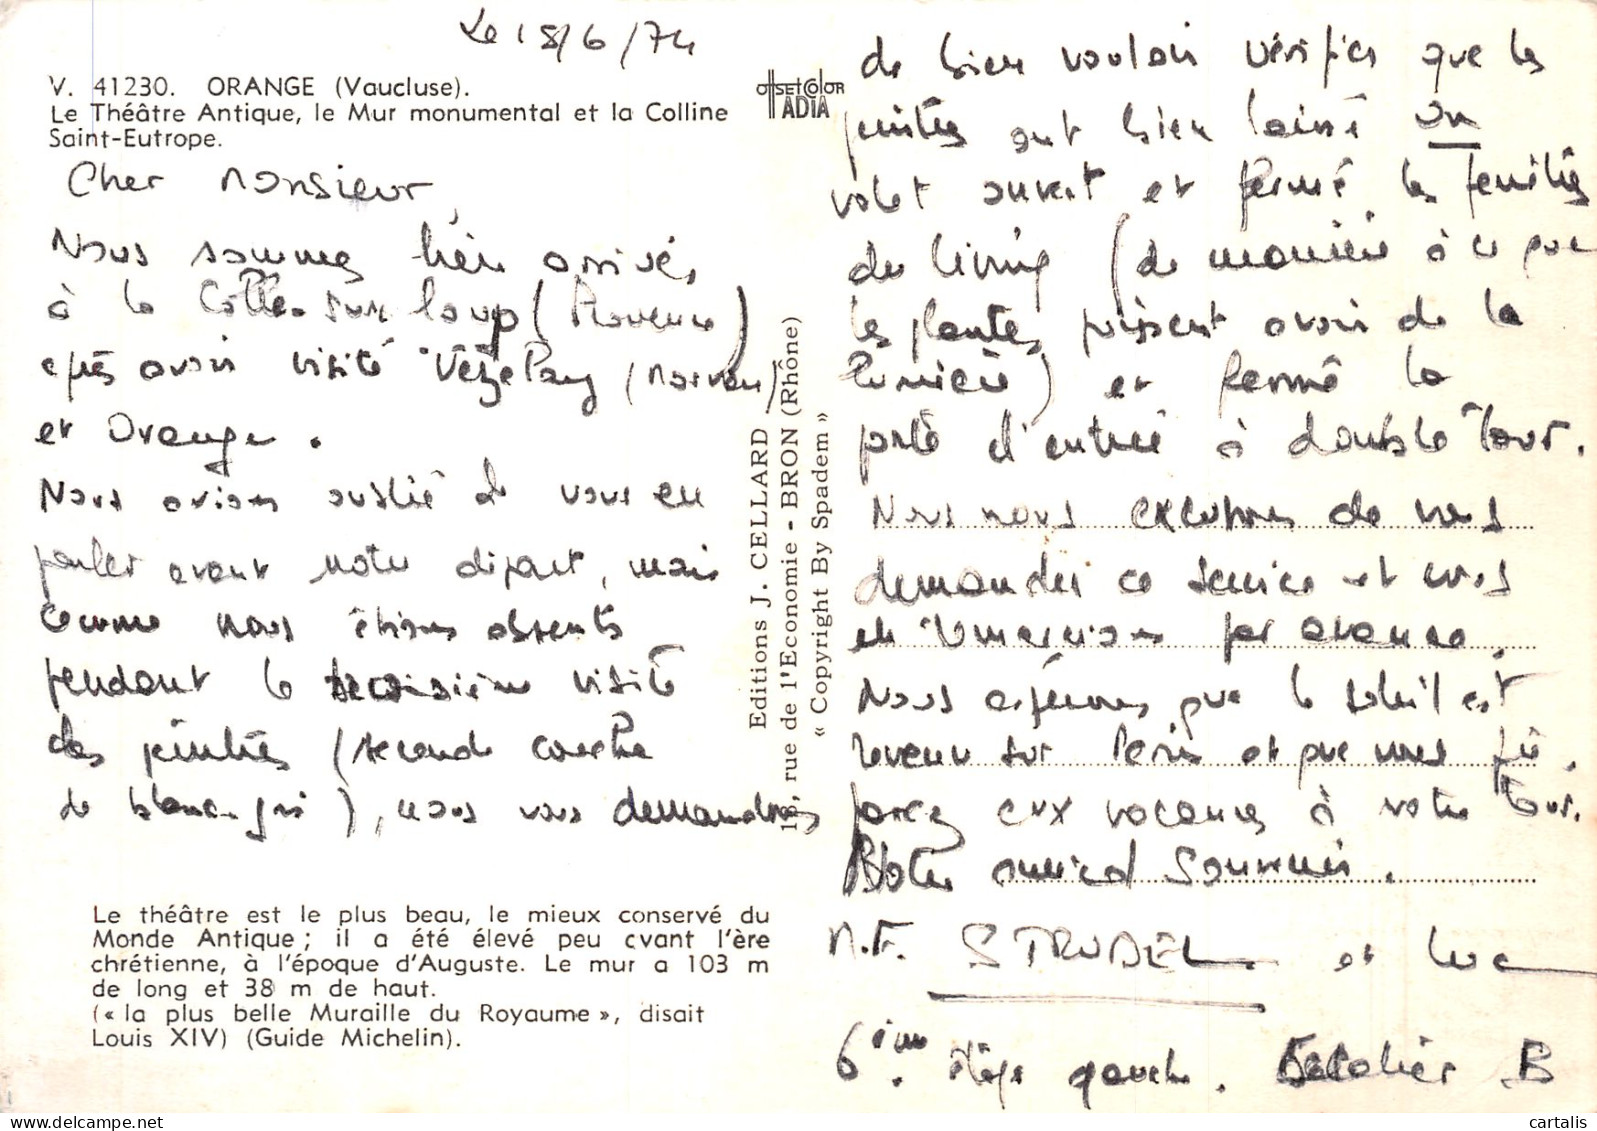 Le 18/6/74
V. 41230. ORANGE (Vaucluse).
Le Théâtre Antique, le Mur monumental et la Colline
Saint-Eutrope.
Cher Monsieur,
Nous sommes hier arrivés
à la Colle-sur-Loup (Provence)
après avoir visité Vézelay (Morvan)
et Orange.
Nous avions oublié de vous en
parler avant notre départ, mais
comme nous étions absents
pendant la troisième visite
des peintres (seconde couche
de blanc-gris), nous vous demandons
Le théâtre est le plus beau, le mieux conservé du
Monde Antique ; il a été élevé peu avant l'ère
chrétienne, à l'époque d'Auguste. Le mur a 103 m
de long et 38 m de haut.
(« la plus belle Muraille du Royaume », disait
Louis XIV) (Guide Michelin).
OFFSET COLOR
ADIA
Editions J. CELLARD
rue de l'Economie - BRON (Rhône)
« Copyright By Spadem »
de bien vouloir vérifier que les
peintres ont bien laissé un
volet ouvert et fermé les fenêtres
du living (de manière à ce que
les plantes puissent avoir de la
lumière) et fermé la
porte d'entrée à double tour.
Nous nous excusons de vous
demander ce service et vous
en remercions par avance.
Nous espérons que le soleil est
revenu sur Paris et que vous
partez aux vacances à votre tour.
Notre amical souvenir.
M.F. STRUDEL et Luc
6ème étage gauche. Escalier B
cartalis